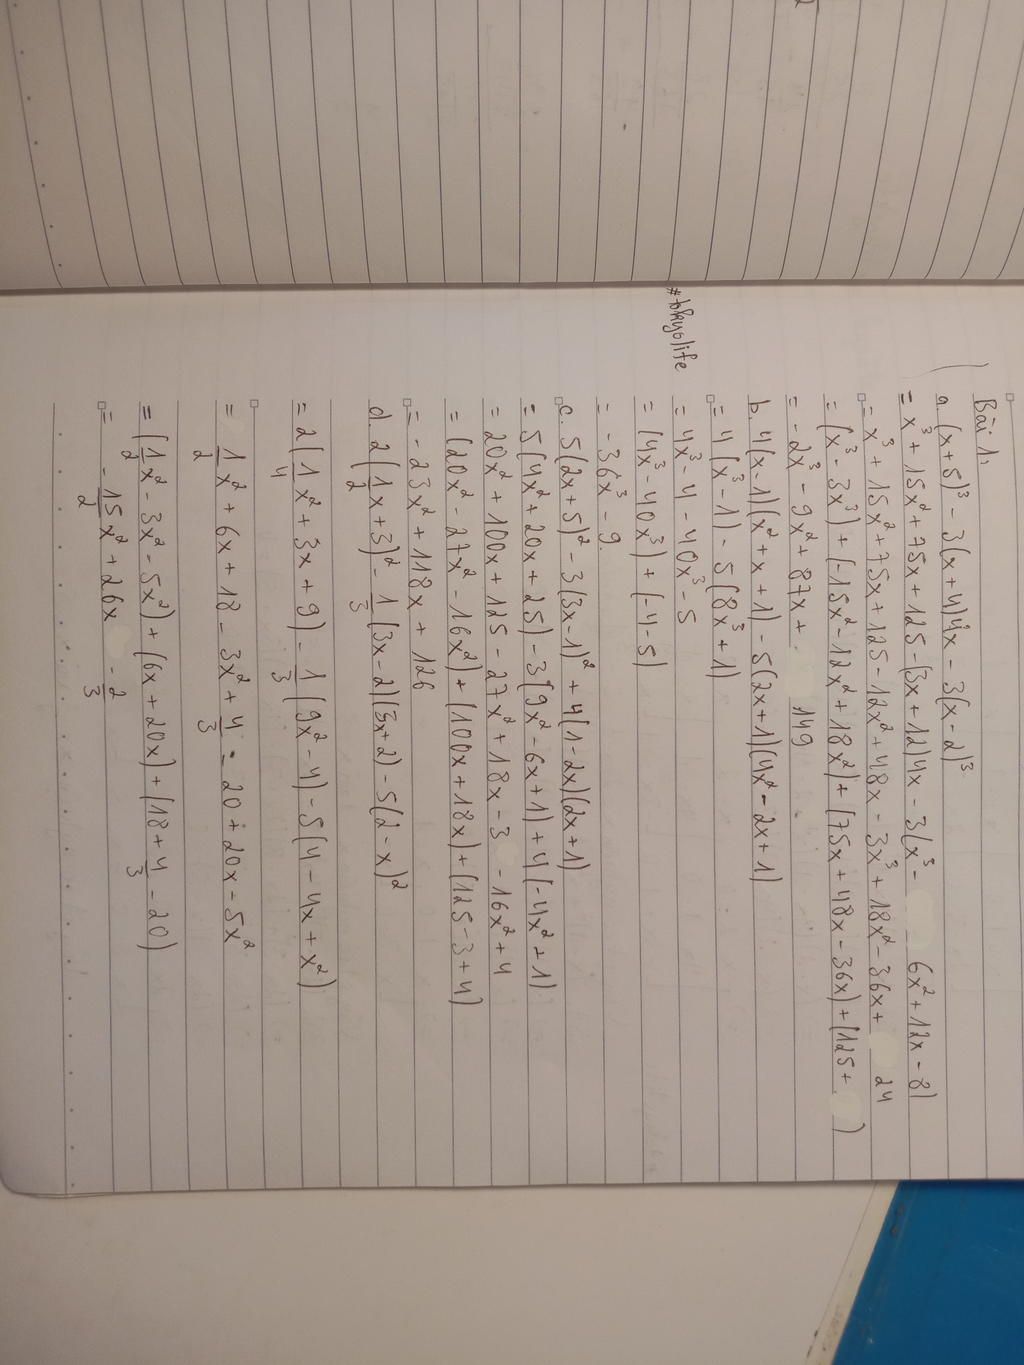 Bài 1.
a. (x+5)³ - 3(x+4)4x - 3(x-2)³
= x³ + 15x² + 75x + 125 - (3x+12)4x - 3(x³ - 6x² + 12x - 8)
= x³ + 15x² + 75x + 125 - 12x² + 48x - 3x³ + 18x² - 36x + 24
= (x³ - 3x³) + (-15x² - 12x² + 18x²) + (75x + 48x - 36x) + (125 + )
= -2x³ - 9x² + 87x + 149
b. 4(x-1)(x² + x + 1) - 5(2x+1)(4x² - 2x + 1)
= 4(x³ - 1) - 5(8x³ + 1)
= 4x³ - 4 - 40x³ - 5
= (4x³ - 40x³) + (-4 - 5)
= -36x³ - 9.
c. 5(2x+5)² - 3(3x-1)² + 4(1-2x)(2x+1)
= 5(4x² + 20x + 25) - 3(9x² - 6x + 1) + 4(-4x² + 1)
= 20x² + 100x + 125 - 27x² + 18x - 3 - 16x² + 4
= (20x² - 27x² - 16x²) + (100x + 18x) + (125 - 3 + 4)
= -23x² + 118x + 126
d. 2(1/2x + 3)² - 1/3(3x-2)(3x+2) - 5(2-x)²
= 2(1/4x² + 3x + 9) - 1/3(9x² - 4) - 5(4 - 4x + x²)
= 1/2x² + 6x + 18 - 3x² + 4/3 - 20 + 20x - 5x²
= (1/2x² - 3x² - 5x²) + (6x + 20x) + (18 + 4/3 - 20)
= -15/2x² + 26x - 2/3
#tokyolife